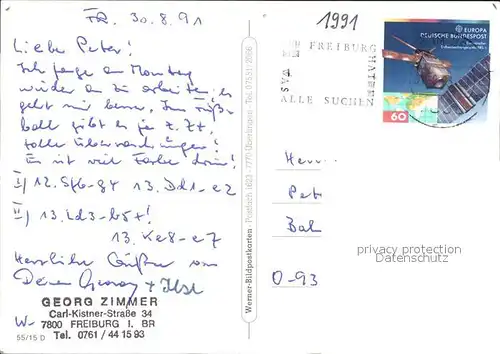 FR. 30.8.91
Liebe Peter!
Ich fange am Montag
wieder an zu arbeiten; es
geht mir besser. Im Fuß-
ball gibt es ja z. Zt.
tolle Überraschungen!
Es ist viel Farbe drin!
I) 12. Sf6-g4 13. Dd1-e2
II) 13. Ld3-b5+!
13. Ke8-e7
Herzliche Grüße von
Deine Georg + Ilse
GEORG ZIMMER
Carl-Kistner-Straße 34
W- 7800 FREIBURG I. BR
Tel. 0761 / 44 15 93
55/15 D
Werner-Bildpostkarten · Postfach 1623 · 7770 Überlingen · Tel. 07551 / 2056
1991
FREIBURG
HATTEN
WAS
ALLE SUCHEN
EUROPA
DEUTSCHE BUNDESPOST
60
Herrn
Pet
Bah
O-93
privacy protection
oldthing.com